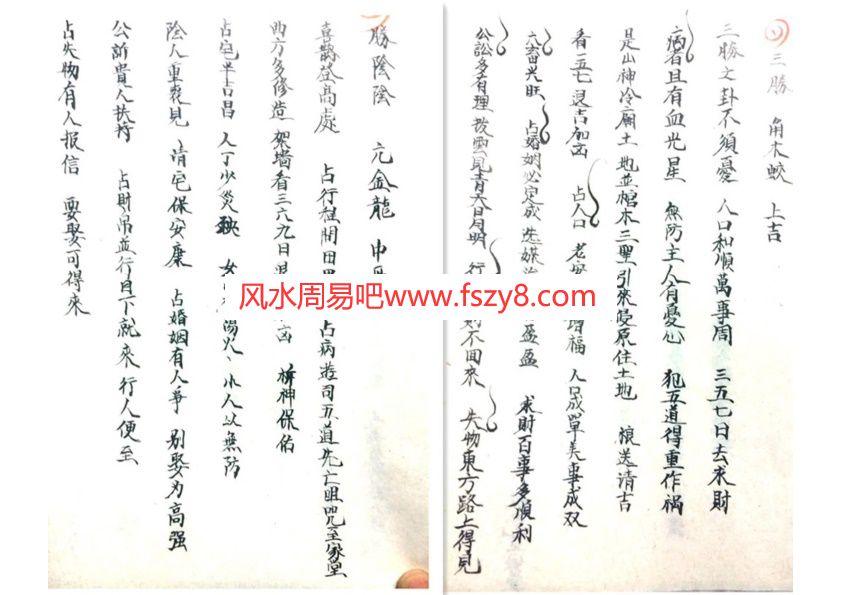 三勝 角木蛟 上吉
三勝之卦不須憂 人口和順萬事周 三五七日去求財
病者且有血光星 無防主人有憂心 犯五道得重作祸
是山神冷庙土地並棺木三聖引來侵原住土地 送请吉
看一五七退吉加凶 占人口老安 增福 人成單美事成双
六畜兴旺 占婚姻必定成 盈盈 求財百事多順利
公訟多有理 拨雲見青天日月明 行 不回來 失物東方路上得見
勝陰陰 亢金龍 中
喜鵲登高處 占行程開田 占病 司五道先亡咀咒至家堂
西方多修造 架墙看三六九日退 凶 祈神保佑
占宅半吉昌 人丁少災秧 女 湯火、小人以無防
陰人重喪見 请宅保安康 占婚姻有人爭 别娶为高强
公訴貴人扶持 占財 行自下就來 行人便至
占失物有人报信 要娶可得來
风水周易吧www.fszy8.com